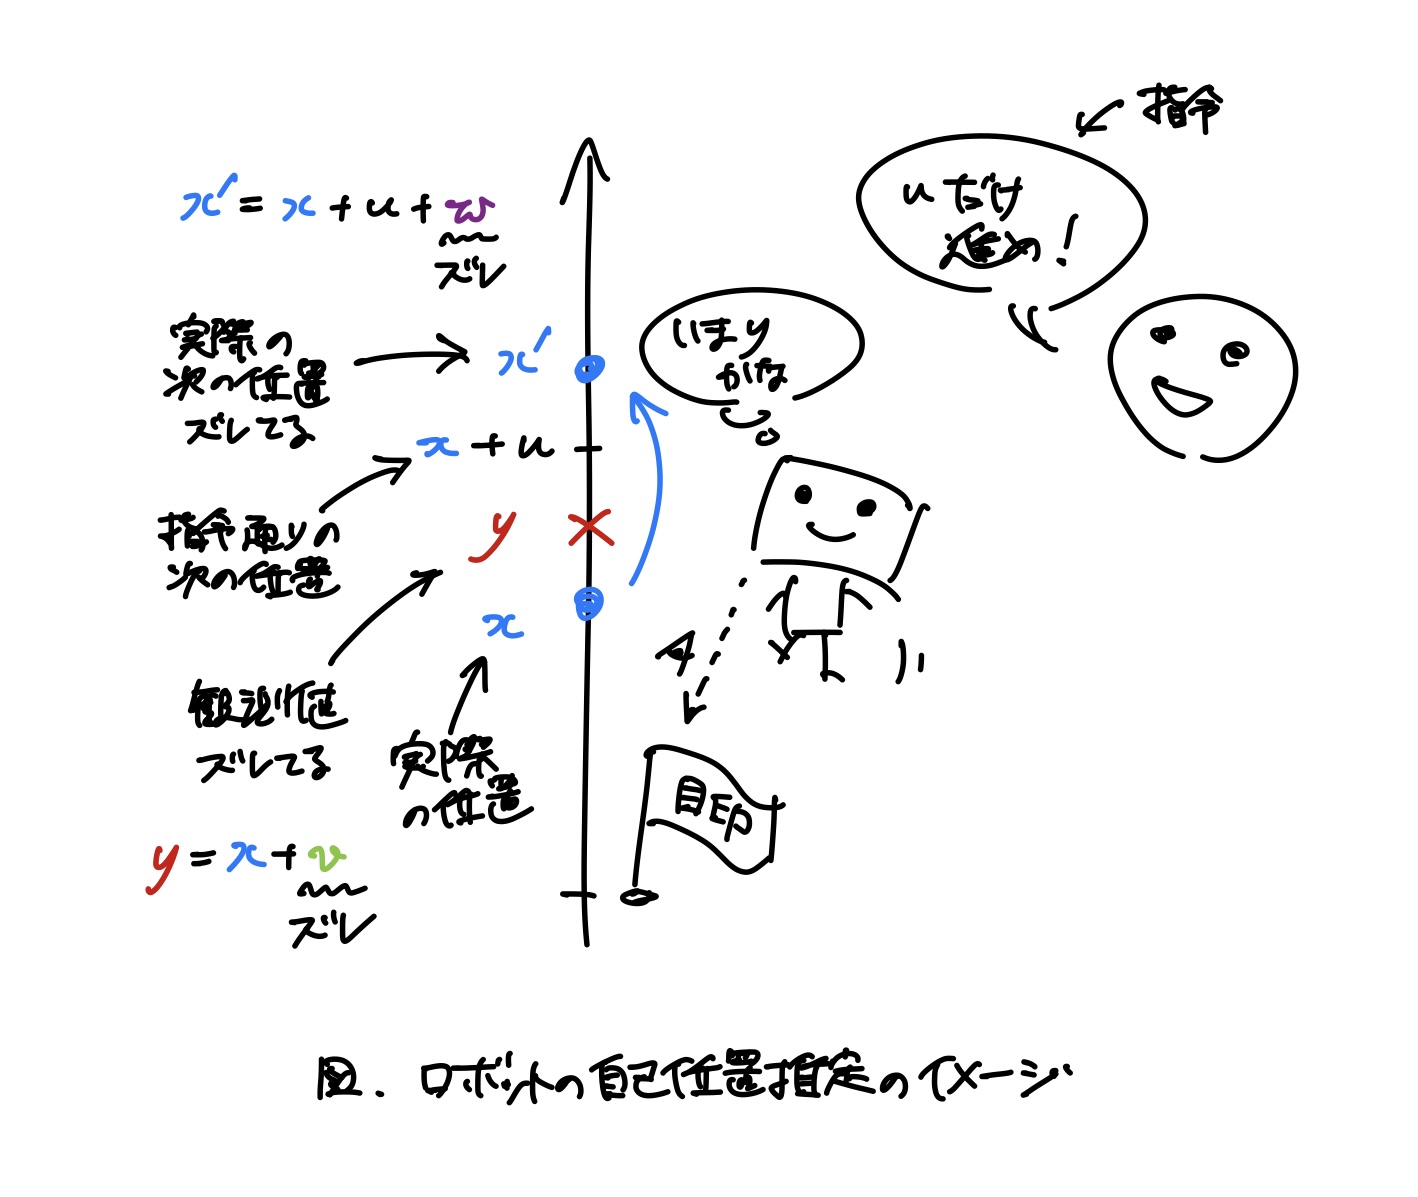 指令
uだけ
進め!
x' = x + u + w
ズレ
実際の
次の位置
ズレてる
x'
いまり
かげな
x + u
指令通りの
次の位置
y
x
観測値
ズレてる
実際
の位置
目印
y = x + v
ズレ
図. ロボットの自己位置推定のイメージ